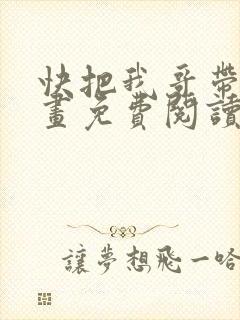 快把我哥帶
畫免費閱讀
讓夢想飛一哈